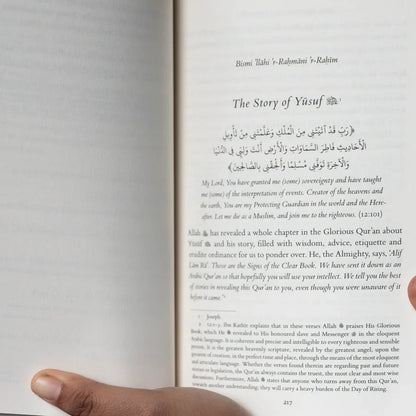 Bismi 'llāhi 'r-Raḥmāni 'r-Raḥīm
The Story of Yūsuf ﷺ¹
﴿رَبِّ قَدْ آتَيْتَنِي مِنَ الْمُلْكِ وَعَلَّمْتَنِي مِنْ تَأْوِيلِ
الْأَحَادِيثِ فَاطِرَ السَّمَاوَاتِ وَالْأَرْضِ أَنْتَ وَلِيِّي فِي الدُّنْيَا
وَالْآخِرَةِ تَوَفَّنِي مُسْلِمًا وَأَلْحِقْنِي بِالصَّالِحِينَ﴾
My Lord, You have granted me (some) sovereignty and have taught
me (some) of the interpretation of events. Creator of the heavens and
the earth, You are my Protecting Guardian in the world and the Here-
after. Let me die as a Muslim, and join me to the righteous. (12:101)
Allah has revealed a whole chapter in the Glorious Qur'an about
Yūsuf and his story, filled with wisdom, advice, etiquette and
erudite ordinance for us to ponder over. He, the Almighty, says, 'Alif
Lām Rā'. These are the Signs of the Clear Book. We have sent it down as an
Arabic Qur'an so that hopefully you will use your intellect. We tell you the best
of stories in revealing this Qur'an to you, even though you were unaware of it
before it came.'²
1 Joseph.
2 12:1-3. Ibn Kathīr explains that in these verses Allah praises His Glorious
Book, which He revealed to His honoured slave and Messenger in the eloquent
Arabic language. It is coherent and precise and intelligible to every righteous and sensible
person. It is the greatest heavenly scripture, revealed by the greatest angel, upon the
greatest of creation, in the perfect time and place, through the means of the most eloquent
and articulate language. Whether verses are found therein are regarding past and future
stories or legislation, the Qur'an always contains the truest, most clear and most wise
discussions. Furthermore, Allah states that anyone who turns away from this Qur'an,
towards something other than it, will be carrying a heavy burden on the Day of Rising
217